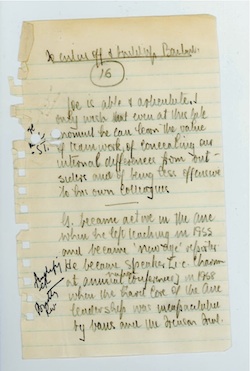 16
Joe is able & articulate. I
only wish that even at this late
moment he can learn the value
of teamwork, of concealing our
internal differences from out-
siders and of being less offensive
to his own colleagues
G. became active in the ANC
when he left teaching in 1955
and became 'New Age' reporter
He became Speaker i.e. Chairm
at annual Conferences in 1958
when the hard core of the ANC
leadership was incapacitated
by bans and the Treason Trial.